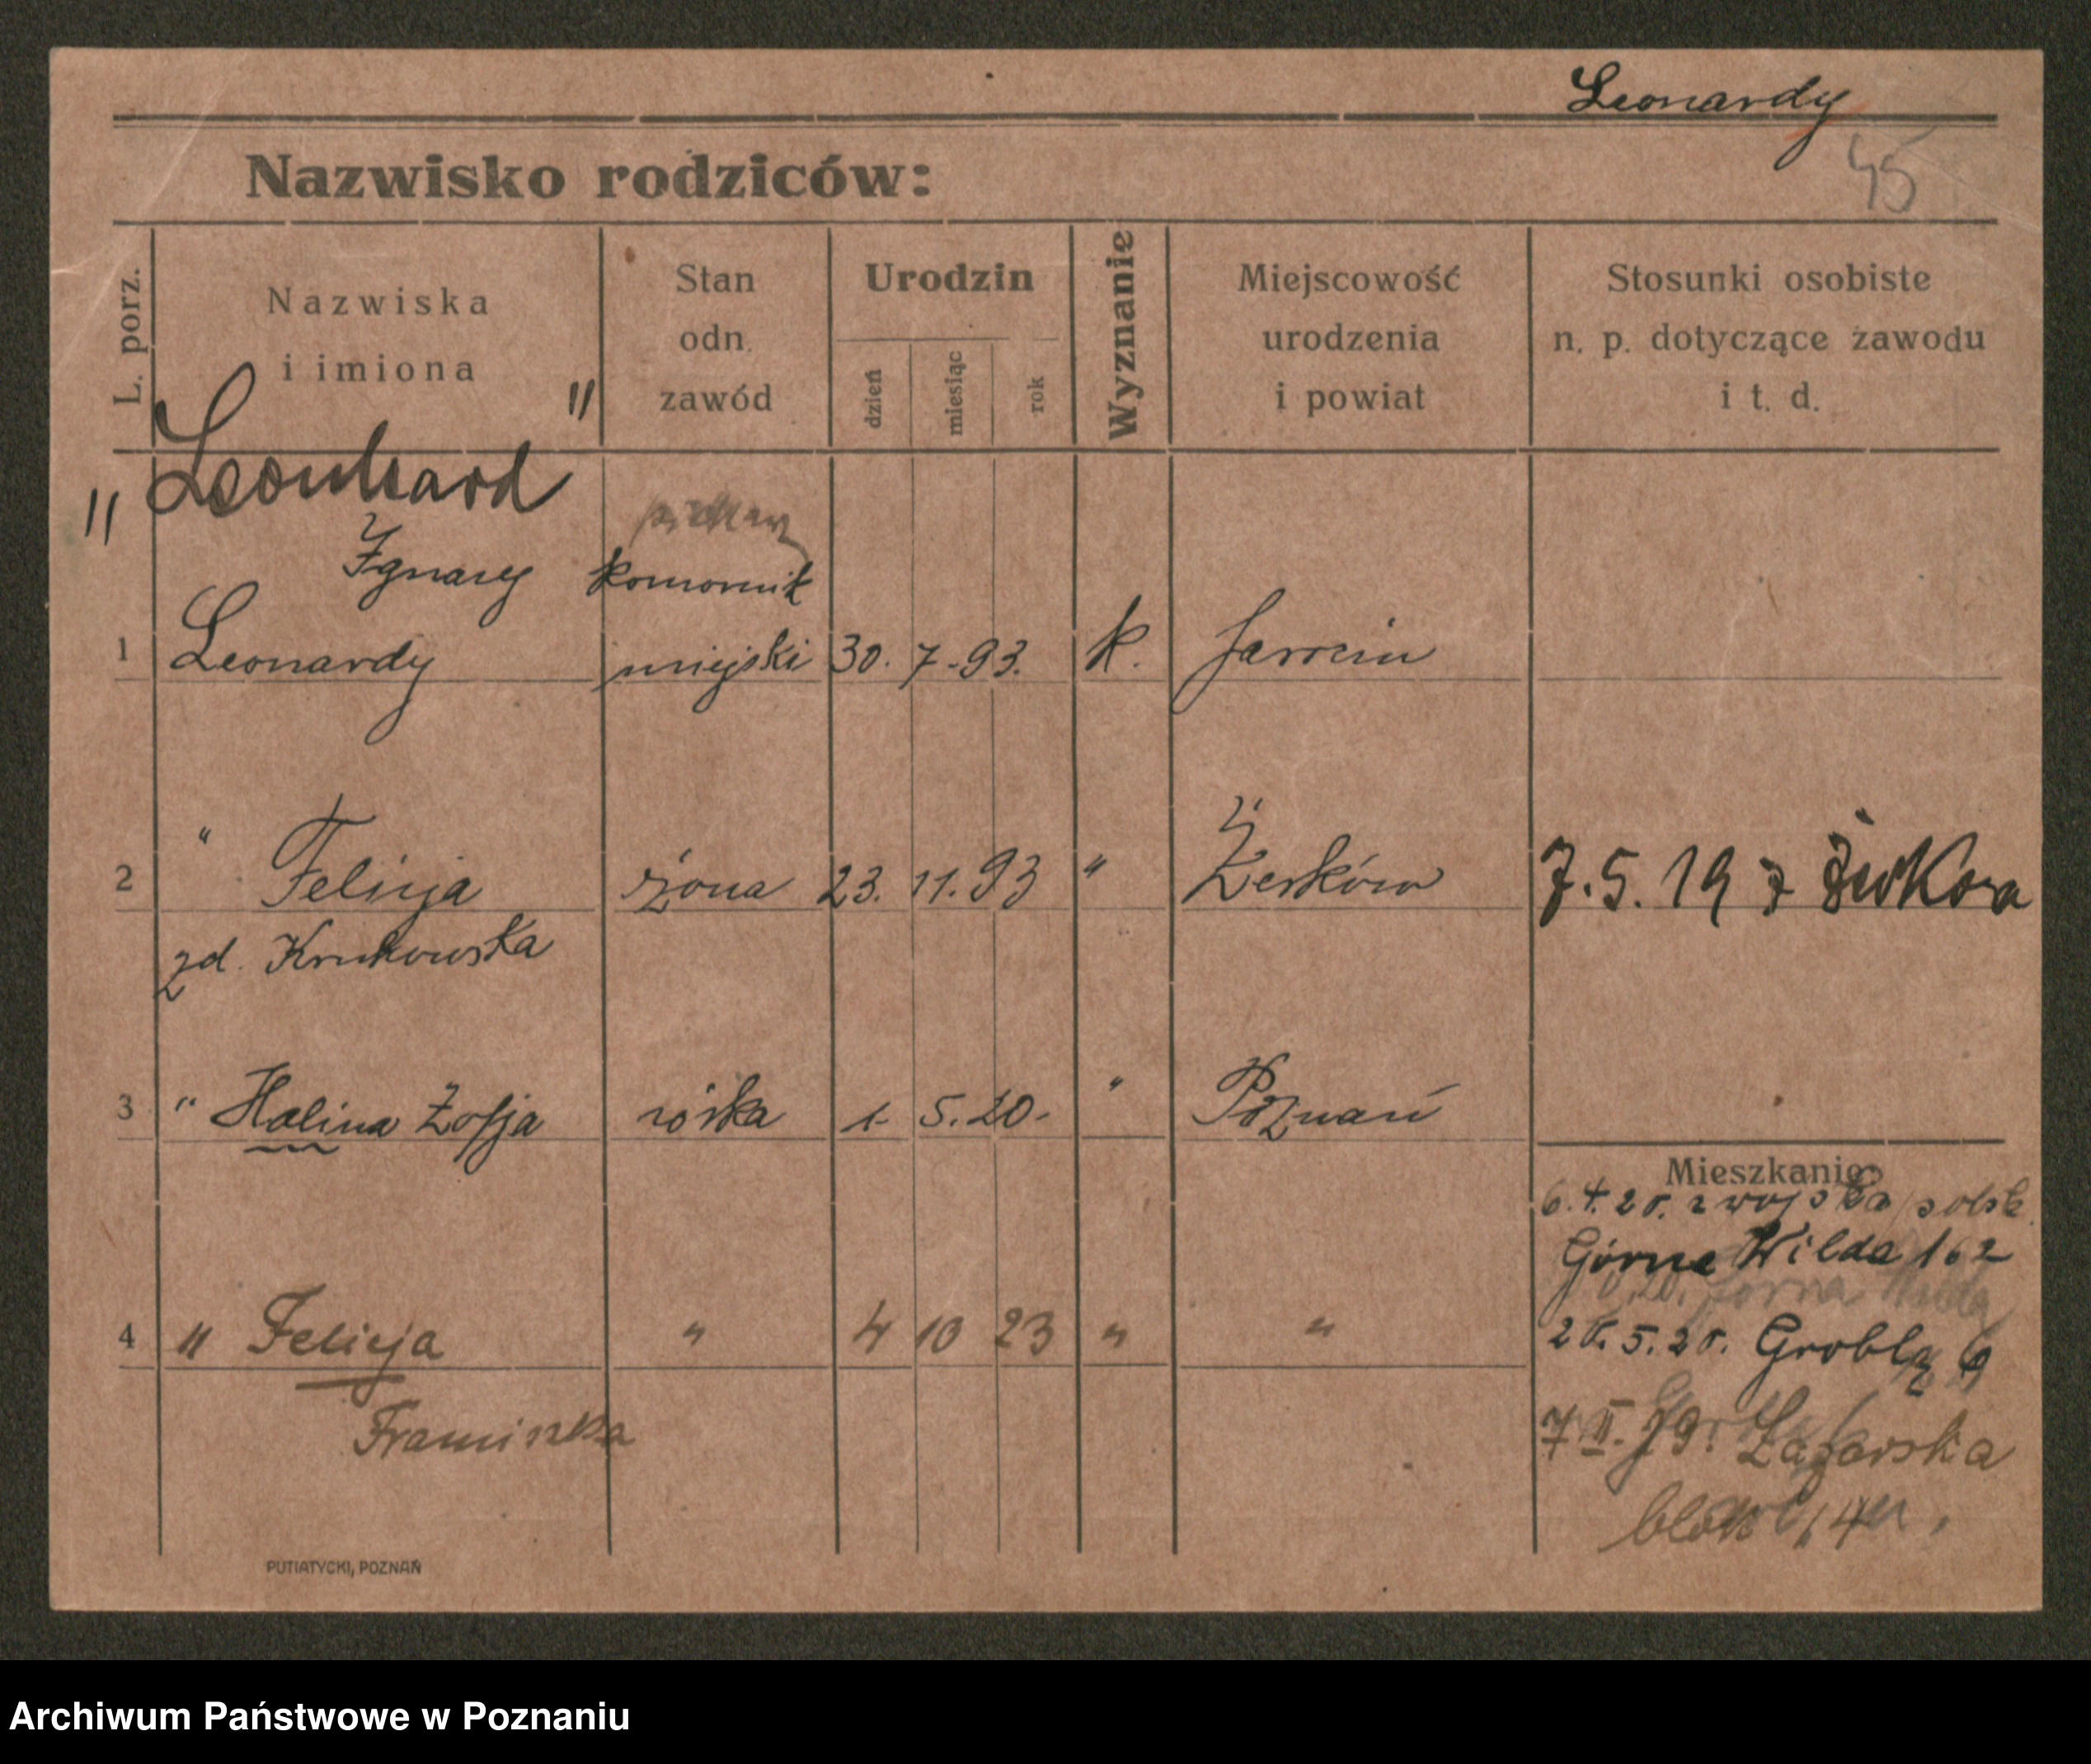 Leonardy
45
Nazwisko rodziców:
L. porz.
Nazwiska
i imiona
Stan
odn.
zawód
Urodzin
dzień
miesiąc
rok
Wyznanie
Miejscowość
urodzenia
i powiat
Stosunki osobiste
n. p. dotyczące zawodu
i t. d.
" Leonhard "
Ignacy komornik
1 Leonardy miejski 30. 7. 93. k. Jarocin
2 " Felicja żona 23. 11. 93 " Żerków 7. 5. 19 z Żerkowa
zd. Krukowska
3 " Halina Zofja córka 1. 5. 20. " Poznań
Mieszkanie:
6. 4. 20. z wojska polsk.
Górna Wilda 162
4 " Felicja " 4 10 23 " "
Franciszka
20. 5. 20. Groblą 6
7 II. 29. Łazarska
blok 14
PUTIATYCKI, POZNAŃ
Archiwum Państwowe w Poznaniu